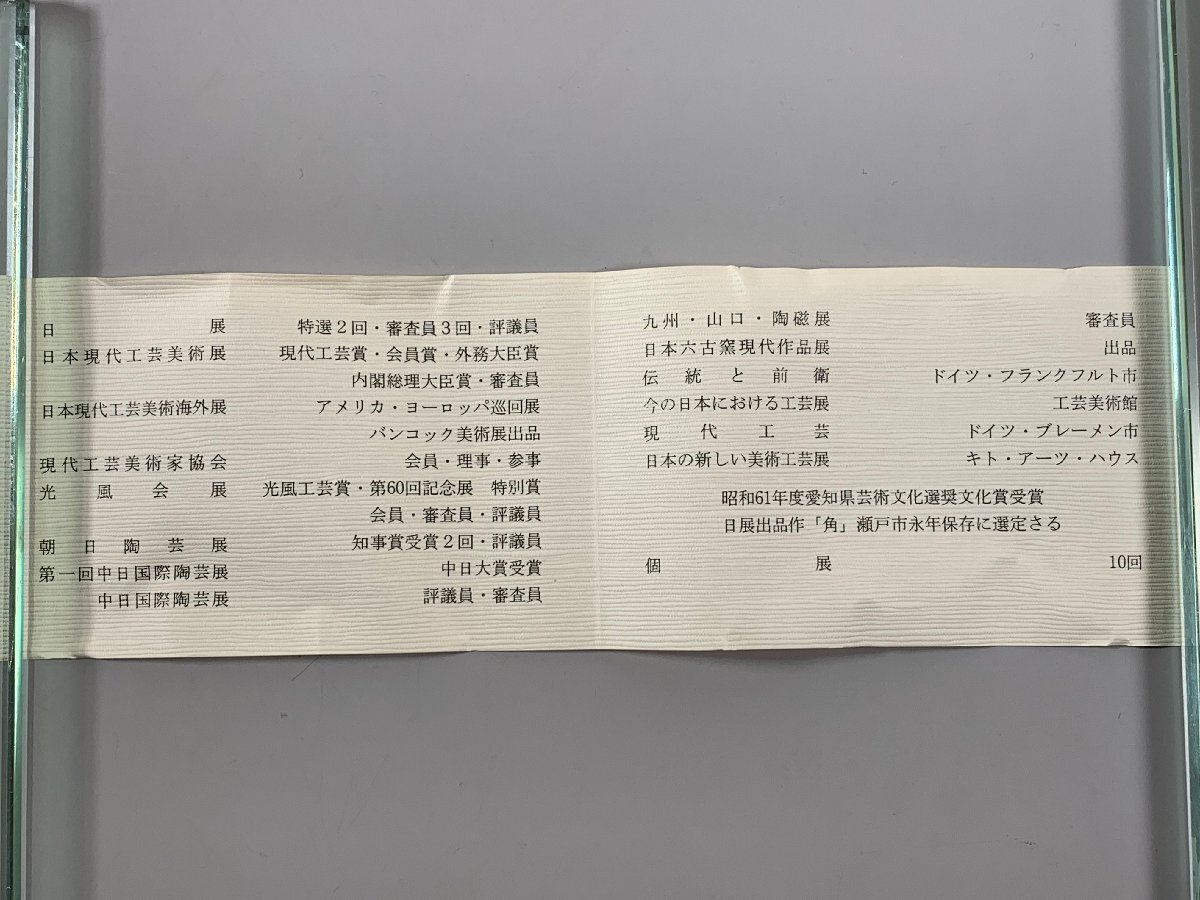 日展 特選2回・審査員3回・評議員
日本現代工芸美術展 現代工芸賞・会員賞・外務大臣賞
内閣総理大臣賞・審査員
日本現代工芸美術海外展 アメリカ・ヨーロッパ巡回展
バンコック美術展出品
現代工芸美術家協会 会員・理事・参事
光風会展 光風工芸賞・第60回記念展 特別賞
会員・審査員・評議員
朝日陶芸展 知事賞受賞2回・評議員
第一回中日国際陶芸展 中日大賞受賞
中日国際陶芸展 評議員・審査員
九州・山口・陶磁展 審査員
日本六古窯現代作品展 出品
伝統と前衛 ドイツ・フランクフルト市
今の日本における工芸展 工芸美術館
現代工芸 ドイツ・ブレーメン市
日本の新しい美術工芸展 キト・アーツ・ハウス
昭和61年度愛知県芸術文化選奨文化賞受賞
日展出品作「角」瀬戸市永年保存に選定さる
個展 10回